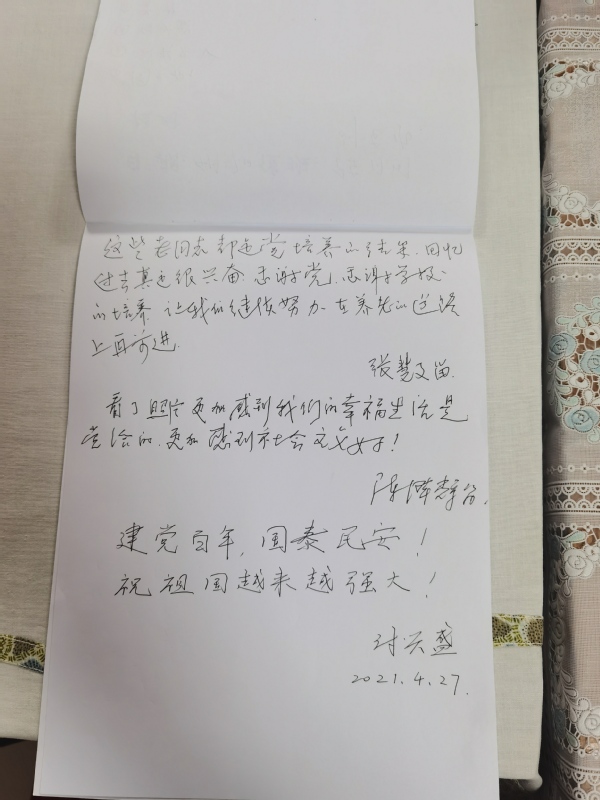 这些老同志都是党培养的结果.回忆
过去真是很兴奋.感谢党.感谢学校
的培养 让我们继续努力 在养老的道路
上再前进.
张慧文留.
看了照片更加感到我们的幸福生活是
党给的.更加感到社会 好!
陈
建党百年,国泰民安!
祝祖国越来越强大!
兴盛
2021.4.27.